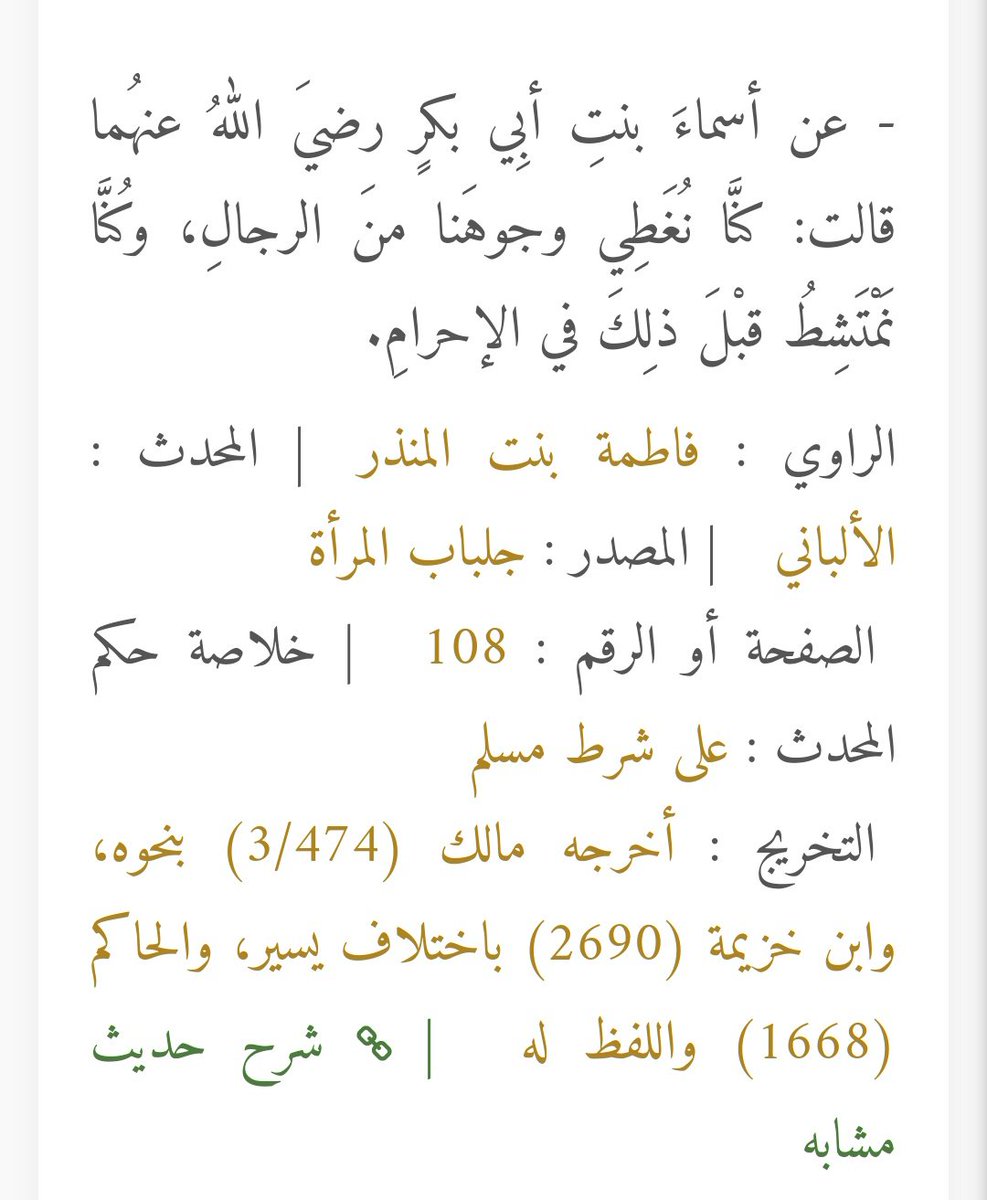 - عن أسماءَ بنتِ أبِي بكرٍ رضيَ اللهُ عنهُما
قالت: كنَّا نُغَطِي وجوهَنا منَ الرجالِ، وكُنَّا
نَمْتَشِطُ قبْلَ ذلِكَ في الإحرامِ.
الراوي : فاطمة بنت المنذر | المحدث :
الألباني | المصدر : جلباب المرأة
الصفحة أو الرقم : 108 | خلاصة حكم
المحدث : على شرط مسلم
التخريج : أخرجه مالك (3/474) بنحوه،
وابن خزيمة (2690) باختلاف يسير، والحاكم
(1668) واللفظ له | شرح حديث
مشابه